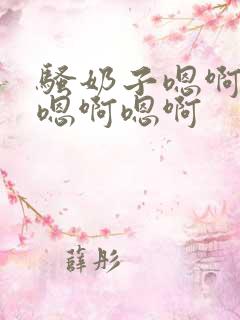 骚奶子嗯啊
嗯啊嗯啊
薛彤